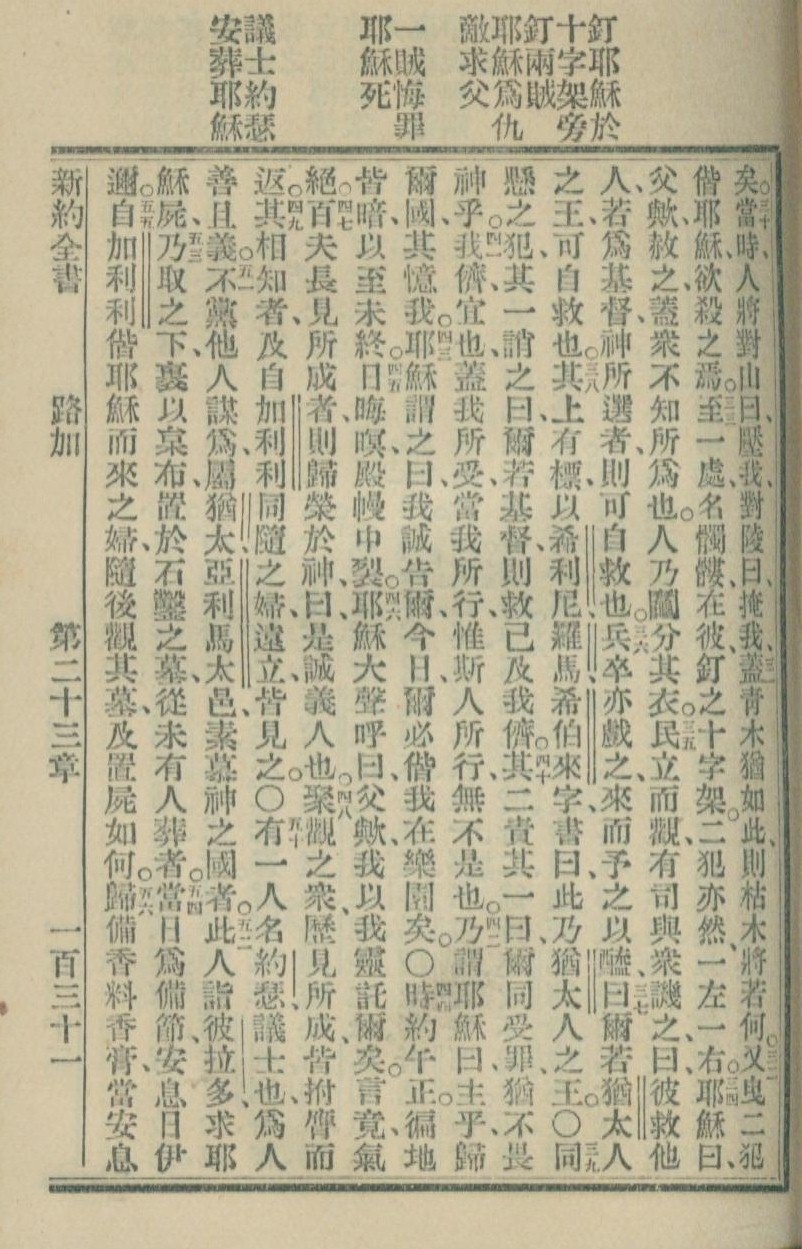 釘耶穌於
十字架旁
釘兩賊
耶穌為仇
敵求父
一賊悔罪
耶穌死
議士約瑟
安葬耶穌
矣。三十當時、人將對山曰、壓我、對陵曰、掩我、三一蓋青木猶如此、則枯木將若何。三二又曳二犯
偕耶穌、欲殺之焉。三三至一處、名髑髏、在彼、釘之十字架。二犯亦然、一左一右。三四耶穌曰、
父歟、赦之、蓋衆不知所爲也。人乃鬮分其衣。三五民立而觀、有司與衆譏之、曰、彼救他
人、若爲基督、神所選者、則可自救也。三六兵卒亦戲之、來而予之以醯、三七曰、爾若猶太人
之王、可自救也。三八其上有標、以希利尼、羅馬、希伯來字書曰、此乃猶太人之王。〇三九同
懸之犯、其一誚之曰、爾若基督、則救己及我儕。四十其二責其一曰、爾同受罪、猶不畏
神乎。四一我儕宜也、蓋我所受、當我所行、惟斯人所行、無不是也。四二乃謂耶穌曰、主乎、歸
爾國、其憶我。四三耶穌謂之曰、我誠告爾、今日、爾必偕我在樂園矣。〇四四時約午正。徧地
皆暗、以至未終。四五日晦暝、殿幔中裂。四六耶穌大聲呼曰、父歟、我以我靈託爾矣。言竟、氣
絕。四七百夫長見所成者、則歸榮於神、曰、是誠義人也。四八聚觀之衆、歷見所成、皆拊膺而
返。四九其相知者、及自加利利同隨之婦、遠立、皆見之。〇五十有一人名約瑟、議士也、爲人
善且義。五一不黨他人謀爲、屬猶太亞利馬太邑、素慕神之國者。五二此人詣彼拉多、求耶
穌屍、五三乃取之下、裹以枲布、置於石鑿之墓、從未有人葬者。五四當日爲備節、安息日伊
邇。五五自加利利偕耶穌而來之婦、隨後觀其墓、及置屍如何。五六歸備香料香膏、當安息
新約全書 路加 第二十三章 一百三十一